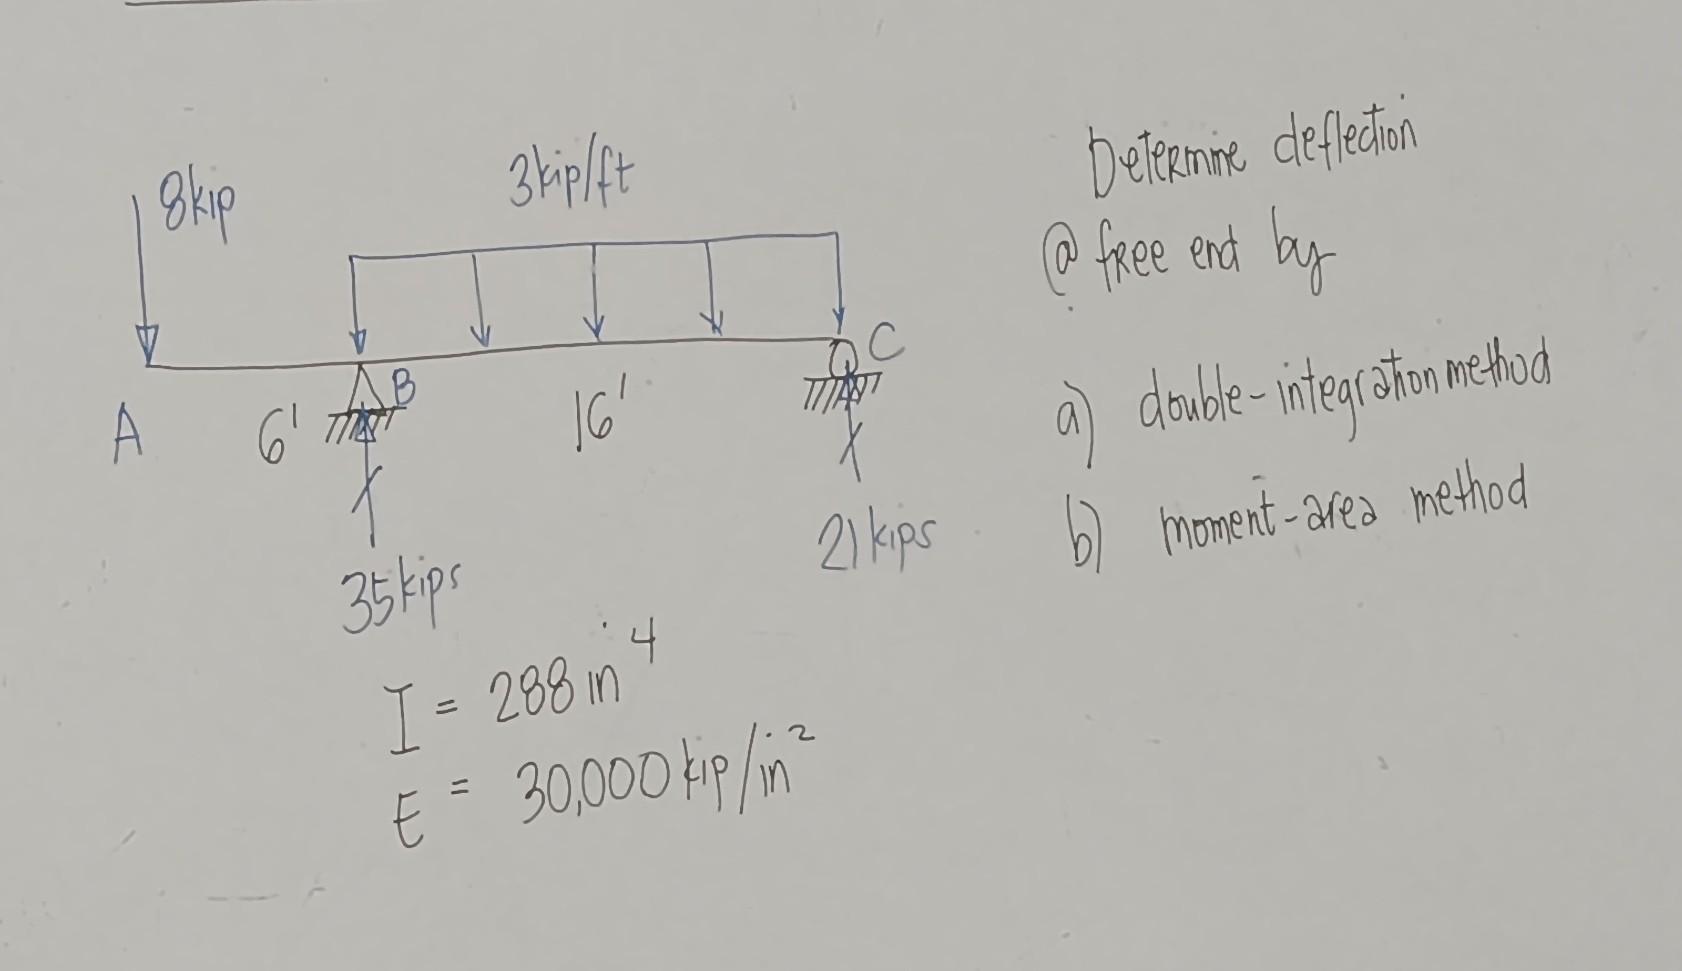 8kip
3kip/ft
A
6'
B
16'
C
35kips
21kips
I = 288 in⁴
E = 30,000 kip/in²
Determine deflection
@ free end by
a) double-integration method
b) moment-area method